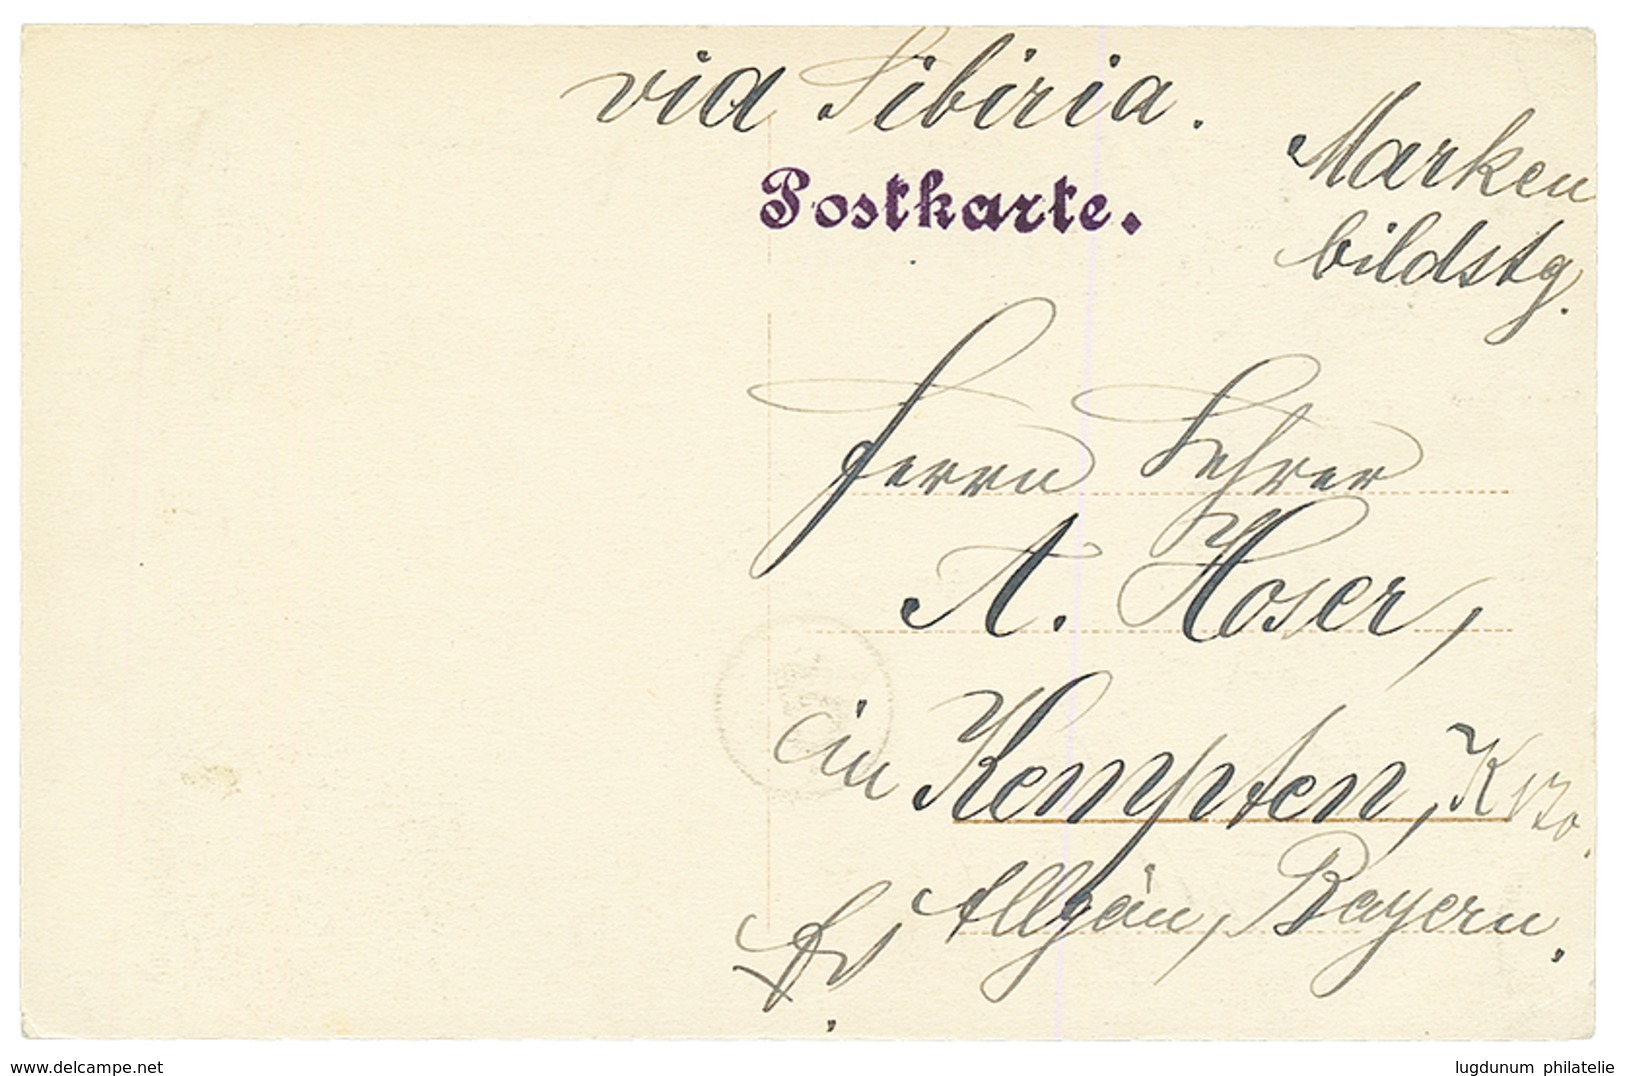 via Sibiria.
Postkarte.
Marken
bildstg.
Herrn Lehrer
A. Hoser,
in Kempten, K 170.
Allgäu, Bayern.
www.delcampe.net
lugdunum philatelie